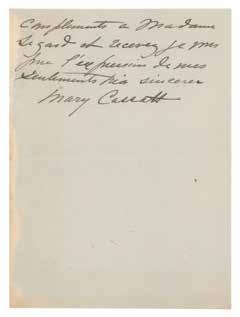 Compliments a Madame
Segard et recevez je vous
prie l'expression de mes
sentiments les sinceres
Mary Cassatt